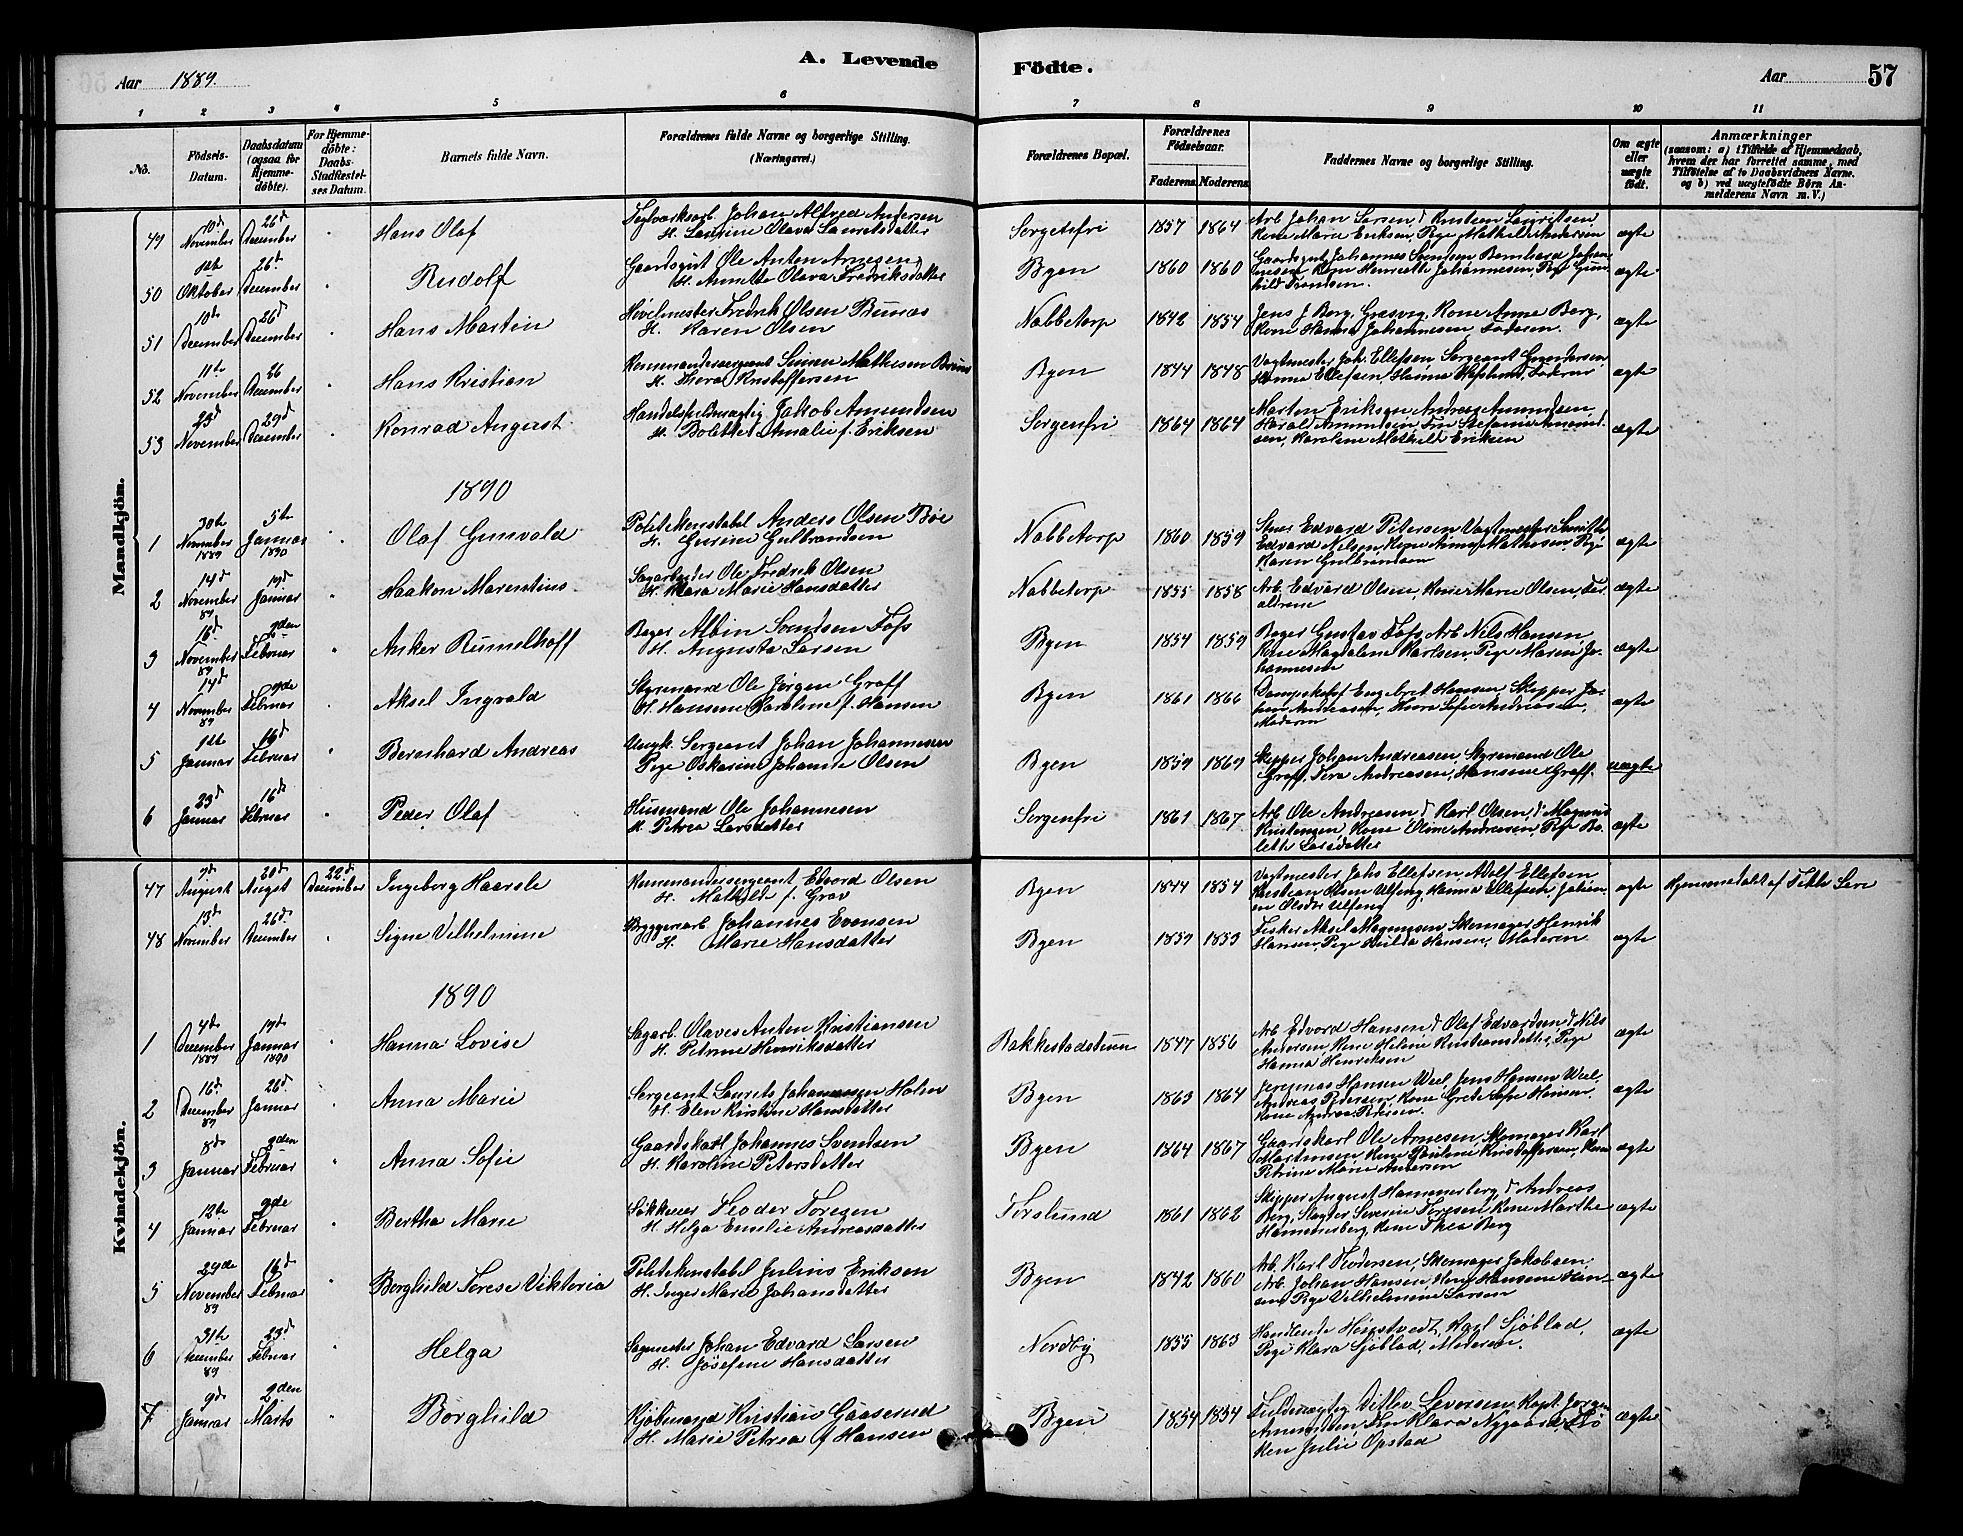 Aar 1889.
A. Levende
Födte.
Aar
57
1 2 3 4 5 6 7 8 9 10 11
No.
Födsels-Datum.
Daabsdatum (ogsaa for Hjemme-döbte).
For Hjemme-döbte: Daabs-Stadfæstel-ses Datum.
Barnets fulde Navn.
Forældrenes fulde Navne og borgerlige Stilling. (Næringsvei.)
Forældrenes Bopæl.
Forældrenes Födselsaar.
Faderens Moderens
Faddernes Navne og borgerlige Stilling.
Om ægte eller uægte födt.
Anmærkninger
(saasom: a) i Tilfælde af Hjemmedaab, hvem der har forrettet samme, med Tilföielse af to Daabsvidners Navne. og b) ved uægtefödte Börn An-melderens Navn m. V.)
Mandkjön.
49 10d November 26d December Hans Olaf
Johan Alfred Andersen
H. Laurine Olava Lauritsdatter
Sorgenfri 1857 1864
Arb Johan Larsen, Kristen Lauritsen
Kone Marie Eriksen, Pige Mathilde Andersen
ægte
50 Oktober 26d December Rudolf
Gaardsgut Ole Anton Arnesen
H. Annette Olava Fredriksdatter
Byen 1860 1860
Gaardsgut Johannes Svendsen Bernhard Johan
nesen Kone Henriette Johannesen, Pige Gun
hild Trondsen.
ægte
51 10d December 26d December Hans Martin
Hövelmester Fredrik Olsen
H. Karen Olsen
Nabbetorp 1842 1854
Jens J Berg, Græsvig, Kone Anne Berg,
Kone Hanna Johannesen, Faderen.
ægte
52 11te November 26 December Hans Kristian
Kommandersergeant Simen Mathisen
H. Thora Kristoffersen
Byen 1844 1848
Vagtmester Joh. Ellefsen, Sergeant Gundersen
Hanna Ellefsen, Hanna Faderen
ægte
53 23d November 29d December Konrad August
Handelsfuldmægtig Jakob Amundsen
H. Bolette Amalie f. Eriksen
Sorgenfri 1864 1864
Marten Eriksen, Andreas Amundsen,
Harald Amundsen, Frk Stefanie Amund-
sen, Karoline Mathild Eriksen
ægte
1890
1 30te November 1889 5te Januar 1890 Olaf Gunvald
Politikonstabel Anders Olsen Böe
H. Gurine Gulbrandsen
Nabbetorp 1860 1859
Edvard Petersen Vagtmester
Edvard Nilsen, Kone Anne Mathisen, Pige
Karen Gulbrandsen
ægte
2 14d November 89 19d Januar Haakon Marentius
Sagarbeider Ole Fredrik Olsen
H. Klara Marie Hansdatter
Nabbetorp 1855 1858
Arb. Edvard Olsen, Kone Marie Olsen, For
ældrene
ægte
3 16d November 89 9den Februar Anker Rummelhoff
Bager Albin Svendsen Fofs
H. Augusta Larsen
Byen 1854 1859
Bager Gustav Fofs Arb Nils Hansen
Kone Magdalene Karlsen, Pige Maren Jo
hannesen
ægte
4 14d November 89 9de Februar Aksel Ingvald
Styrmand Ole Jörgen Graff
H. Hansine Karoline f. Hansen
Byen 1861 1866
Engebret Hansen Skipper Jo-
han Andreasen, Sofie Andreasen,
Moderen
ægte
5 1ste Januar 16d Februar Bernhard Andreas
Ungk. Sergeant Johan Johannesen
Pige Oskarine Johanne Olsen
Byen 1859 1869
Skipper Johan Andreasen, Styrmand Ole
Graff, Andreasen, Hansine Graff.
uægte
6 23d Januar 16d Februar Peder Olaf
Husmand Ole Johannesen
H. Petrea Larsdatter
Sorgenfri 1861 1867
Arb Ole Andreasen, Karl Olsen, Magnus
Kristensen, Kone Oline Andreasen Pige Bo
lette Larsdatter
ægte
Kvindekjön.
47 7d August 20d August 22d December Ingeborg Haarsle
Kommandersergeant Edvard Olsen
H. Mathilde f. Grav
Byen 1844 1854
Vagtmester Johs Ellefsen, Adolf Ellefsen
Kristian Olsen Ulfeng, Hanna Ellefsen
Ulfeng
ægte
Hjemmedöbt af
48 13d November 26d December Signe Vilhelmine
Bryggeriarb Johannes Evensen
H. Marie Hansdatter
Byen 1859 1853
Fisker Aksel Mogensen Skomager Henrik
Hansen, Pige Hulda Hansen, Moderen
ægte
1890
1 4d December 1889 19d Januar 1890 Hanna Lovise
Sagarb. Olaves Anton Kristiansen
H. Petrine Henriksdatter
Rakkestadstuen 1847 1856
Arb Edvard Hansen, Olaf Edvardsen, Nils
Andersen, Kone Heline Kristiansdatter, Pige
Hanna Henriksen
ægte
2 16d December 89 26d Januar Anna Marie
Sergeant Laurits Johannesen Holm
H. Elen Kirstine Hansdatter
Byen 1863 1864
Jeremias Hansen Weel, Jens Hansen Weel,
Andreas Pedersen, Kone Grete Sofie Hansen,
Kone Andrea Pedersen.
ægte
3 8de Januar 9den Februar Anna Sofie
Gaardskarl Johannes Svendsen
H. Karoline Petersdatter
Byen 1864 1867
Gaardskarl Ole Arnesen, Skomager Karl
Martinsen, Kone Pauline Kristoffersen, Kone
Petrine Marie Andersen
ægte
4 12te Januar 9de Februar Bertha Marie
Teoder Toresen
H. Helga Emilie Andreasdatter
Torslund 1861 1862
Skipper August Hammerberg, Andreas
Berg, Slagter Severin Toresen, Kone Marthe
Hammerberg, Kone Thea Berg
ægte
5 29de November 89 16d Februar Borghild Torese Viktoria
Politikonstabel Julius Eriksen
H. Inger Marie Johansdatter
Byen 1842 1860
Arb. Karl Teodersen, Skomager Jakobsen,
Arb. Johan Hansen, Kone Hansine Han-
sen Pige Vilhelmine Larsen
ægte
6 31te December 89 23d Februar Helga
Sagmester Johan Edvard Larsen
H. Josefine Hansdatter
Nordby 1855 1863
Handlende Hingstvedt, Karl Sjöblad,
Pige Klara Sjöblad, Moderen.
ægte
7 9d Januar 2den Marts Borghild
Kjöbmand Kristian Gaaserud
H. Marie Petrea f Hansen
Byen 1854 1854
Fuldmægtig Ditlev Severson, Kapt. Jörgen
Amundsen, Klara Nygaard, Frö
ken Julie Opstad
ægte